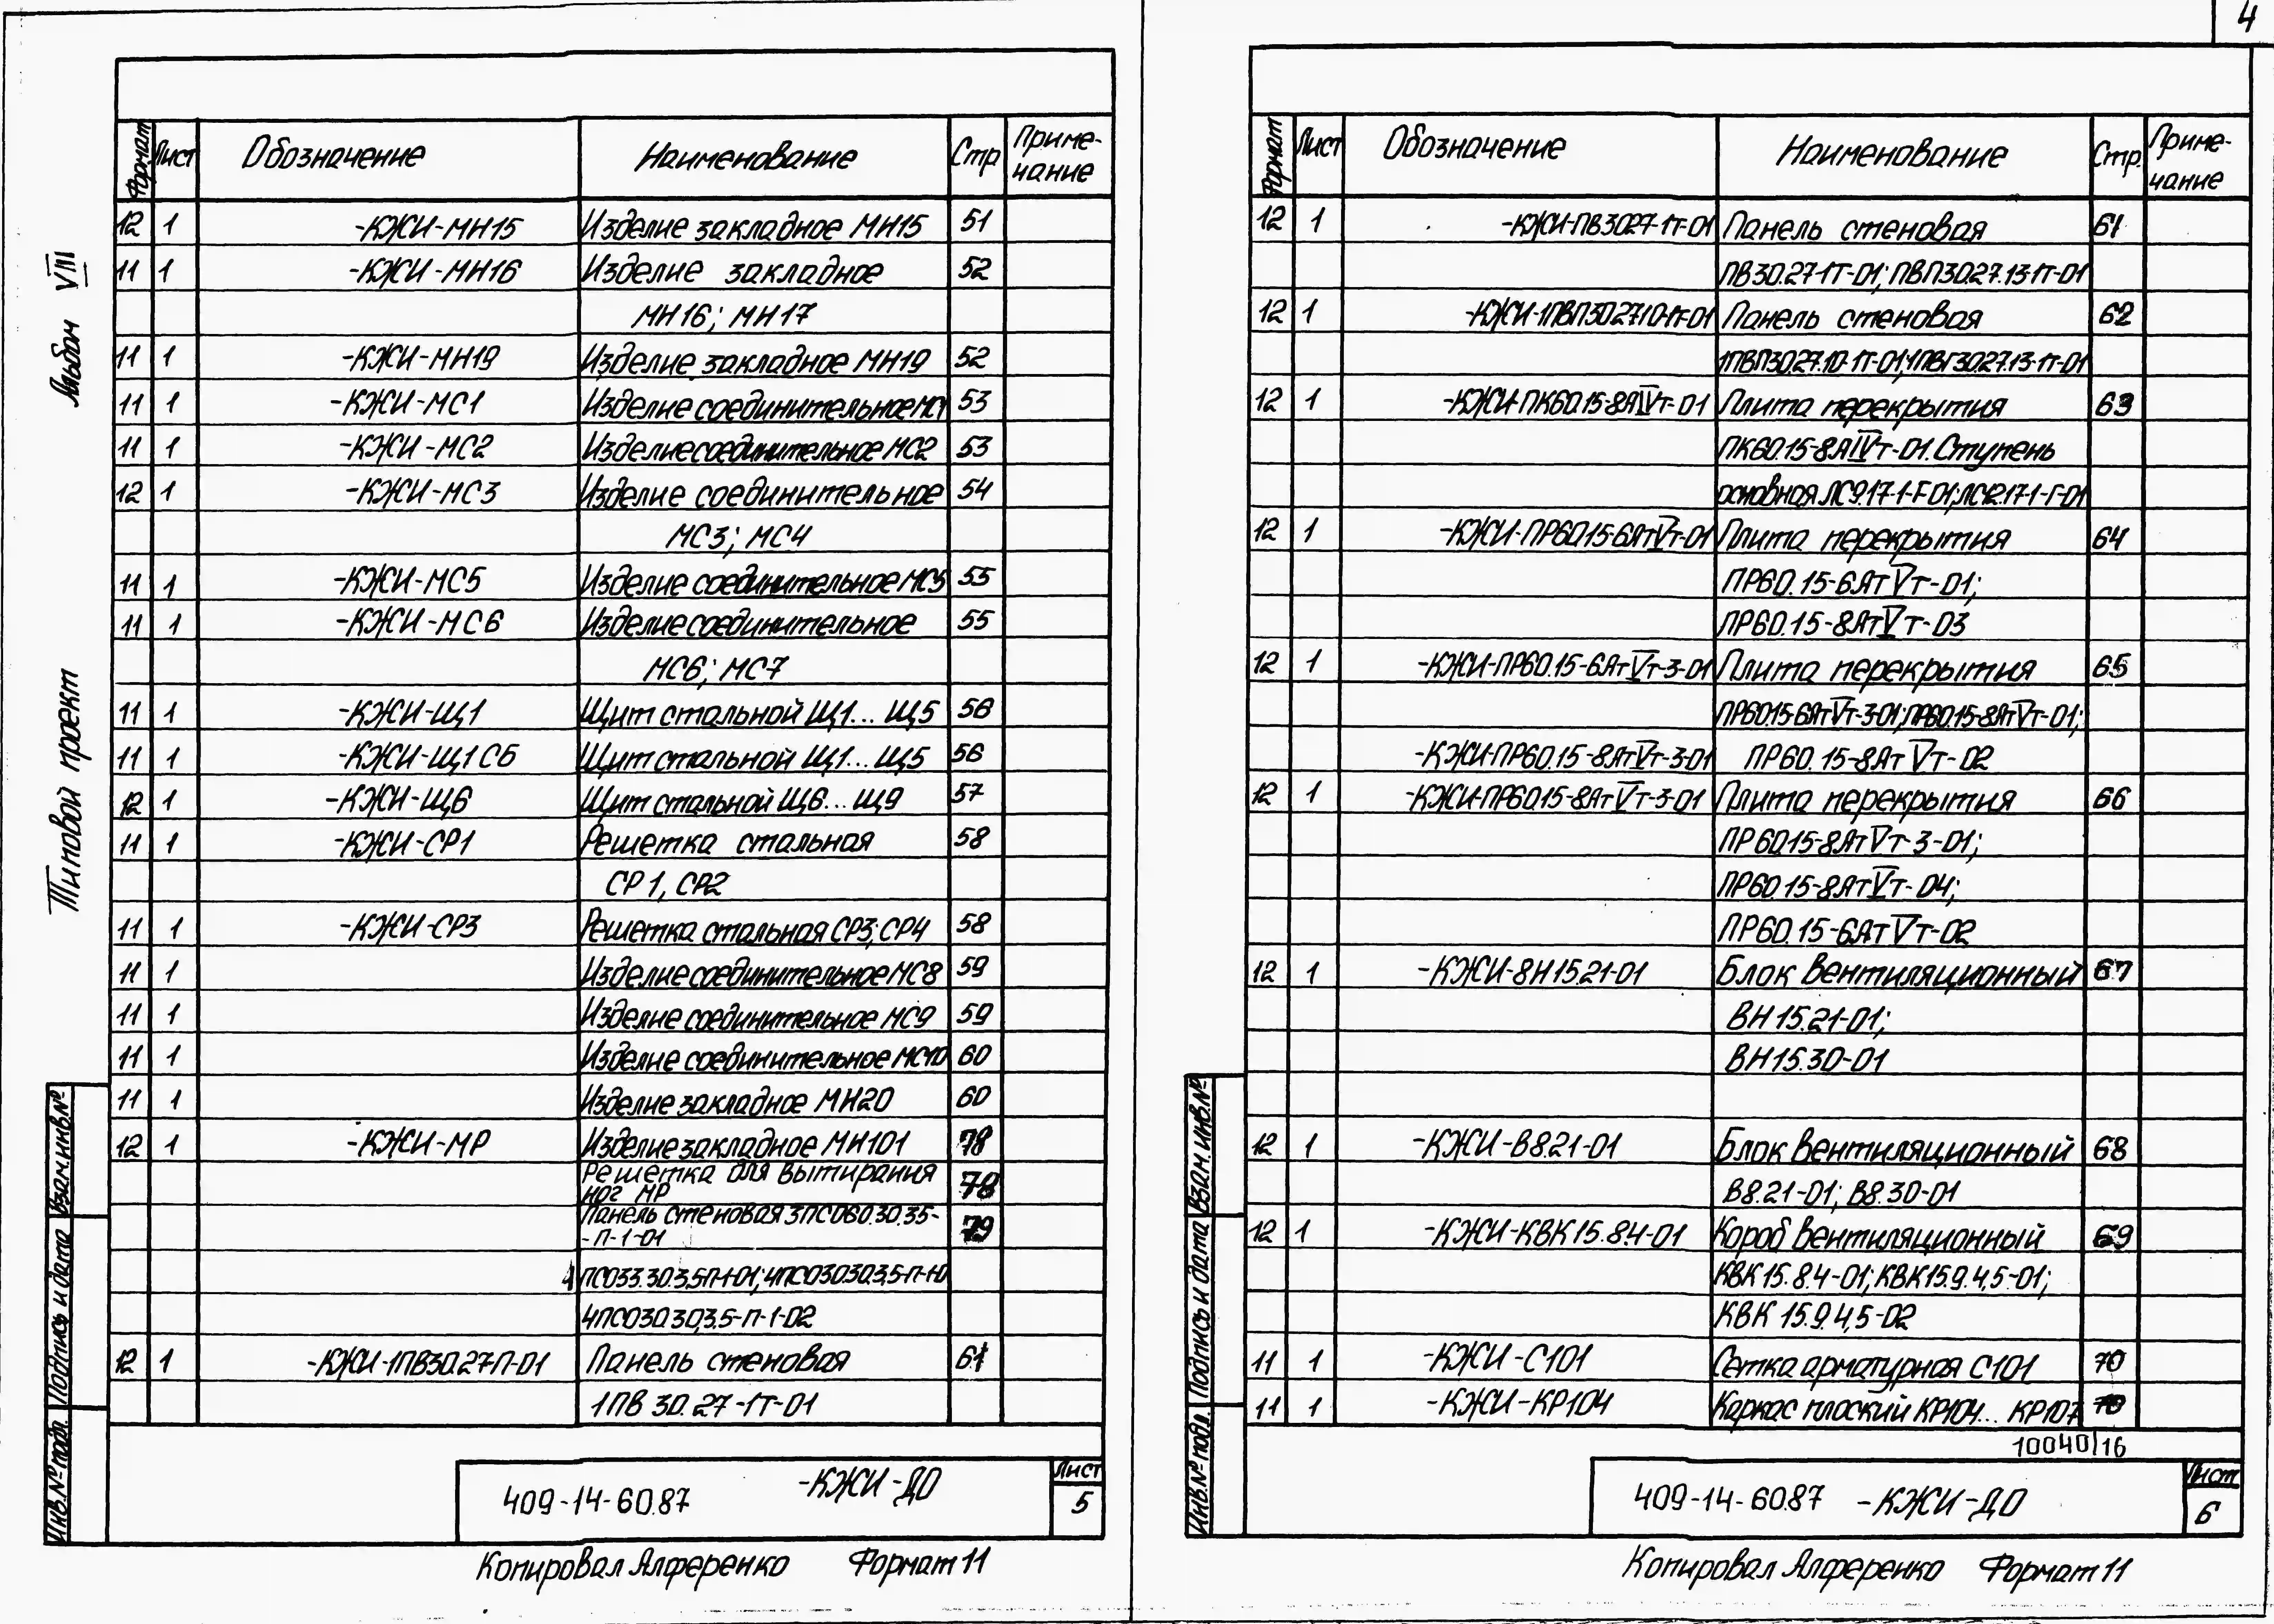 4
Альбом VIII
Типовой проект
Формат Лист Обозначение Наименование Стр Приме-
чание
12 1 -КЖИ-МН15 Изделие закладное МН15 51
11 1 -КЖИ-МН16 Изделие закладное 52
МН16; МН17
11 1 -КЖИ-МН19 Изделие закладное МН19 52
11 1 -КЖИ-МС1 Изделие соединительное МС1 53
11 1 -КЖИ-МС2 Изделие соединительное МС2 53
12 1 -КЖИ-МС3 Изделие соединительное 54
МС3; МС4
11 1 -КЖИ-МС5 Изделие соединительное МС5 55
11 1 -КЖИ-МС6 Изделие соединительное 55
МС6; МС7
11 1 -КЖИ-Щ1 Щит стальной Щ1...Щ5 56
11 1 -КЖИ-Щ1СБ Щит стальной Щ1...Щ5 56
12 1 -КЖИ-Щ6 Щит стальной Щ6...Щ9 57
11 1 -КЖИ-СР1 Решетка стальная 58
СР1, СР2
11 1 -КЖИ-СР3 Решетка стальная СР3; СР4 58
11 1 Изделие соединительное МС8 59
11 1 Изделие соединительное МС9 59
11 1 Изделие соединительное МС10 60
11 1 Изделие закладное МН20 60
12 1 -КЖИ-МР Изделие закладное МН101 78
Решетка для вытирания
ног МР 78
Панель стеновая 3ПС060.30.35-
-П-1-01 79
4ПС033.30.3,5П-1-01; 4ПС030.30.3,5-П-1-0
4ПС030.30.3,5-П-1-02
12 1 -КЖИ-1ПВ30.27П-01 Панель стеновая 61
1ПВ 30.27-1т-01
409-14-60.87 -КЖИ-ДО Лист
5
Инв.№ подл. Подпись и дата Взам.инв.№
Копировал Алференко Формат 11
Формат Лист Обозначение Наименование Стр. Приме-
чание
12 1 -КЖИ-ПВ30.27-1т-01 Панель стеновая 61
ПВ30.27-1т-01; ПВП30.27.13-1т-01
12 1 -КЖИ-1ПВП30.27.10-1т-01 Панель стеновая 62
1ПВП30.27.10-1т-01; 1ПВГ30.27.13-1т-01
12 1 -КЖИ-ПК60.15-8АIVт-01 Плита перекрытия 63
ПК60.15-8АIVт-01. Ступень
основная ЛС9.17-1-Г-01; ЛС12.17-1-Г-01
12 1 -КЖИ-ПР60.15-6АтVт-01 Плита перекрытия 64
ПР60.15-6АтVт-01;
ПР60.15-8АтVт-03
12 1 -КЖИ-ПР60.15-6АтVт-3-01 Плита перекрытия 65
ПР60.15-6АтVт-3-01; ПР60.15-8АтVт-01;
-КЖИ-ПР60.15-8АтVт-3-01 ПР60.15-8АтVт-02
12 1 -КЖИ-ПР60.15-8АтVт-3-01 Плита перекрытия 66
ПР60.15-8АтVт-3-01;
ПР60.15-8АтVт-04;
ПР60.15-6АтVт-02
12 1 -КЖИ-8Н15.21-01 Блок вентиляционный 67
ВН15.21-01;
ВН15.30-01
12 1 -КЖИ-В8.21-01 Блок вентиляционный 68
В8.21-01; В8.30-01
12 1 -КЖИ-КВК15.8.4-01 Короб вентиляционный 69
КВК15.8.4-01; КВК15.9.4,5-01;
КВК 15.9.4,5-02
11 1 -КЖИ-С101 Сетка арматурная С101 70
11 1 -КЖИ-КР104 Каркас плоский КР104...КР107 70
10040/16
409-14-60.87 -КЖИ-ДО Лист
6
Инв.№ подл. Подпись и дата Взам.инв.№
Копировал Алференко Формат 11